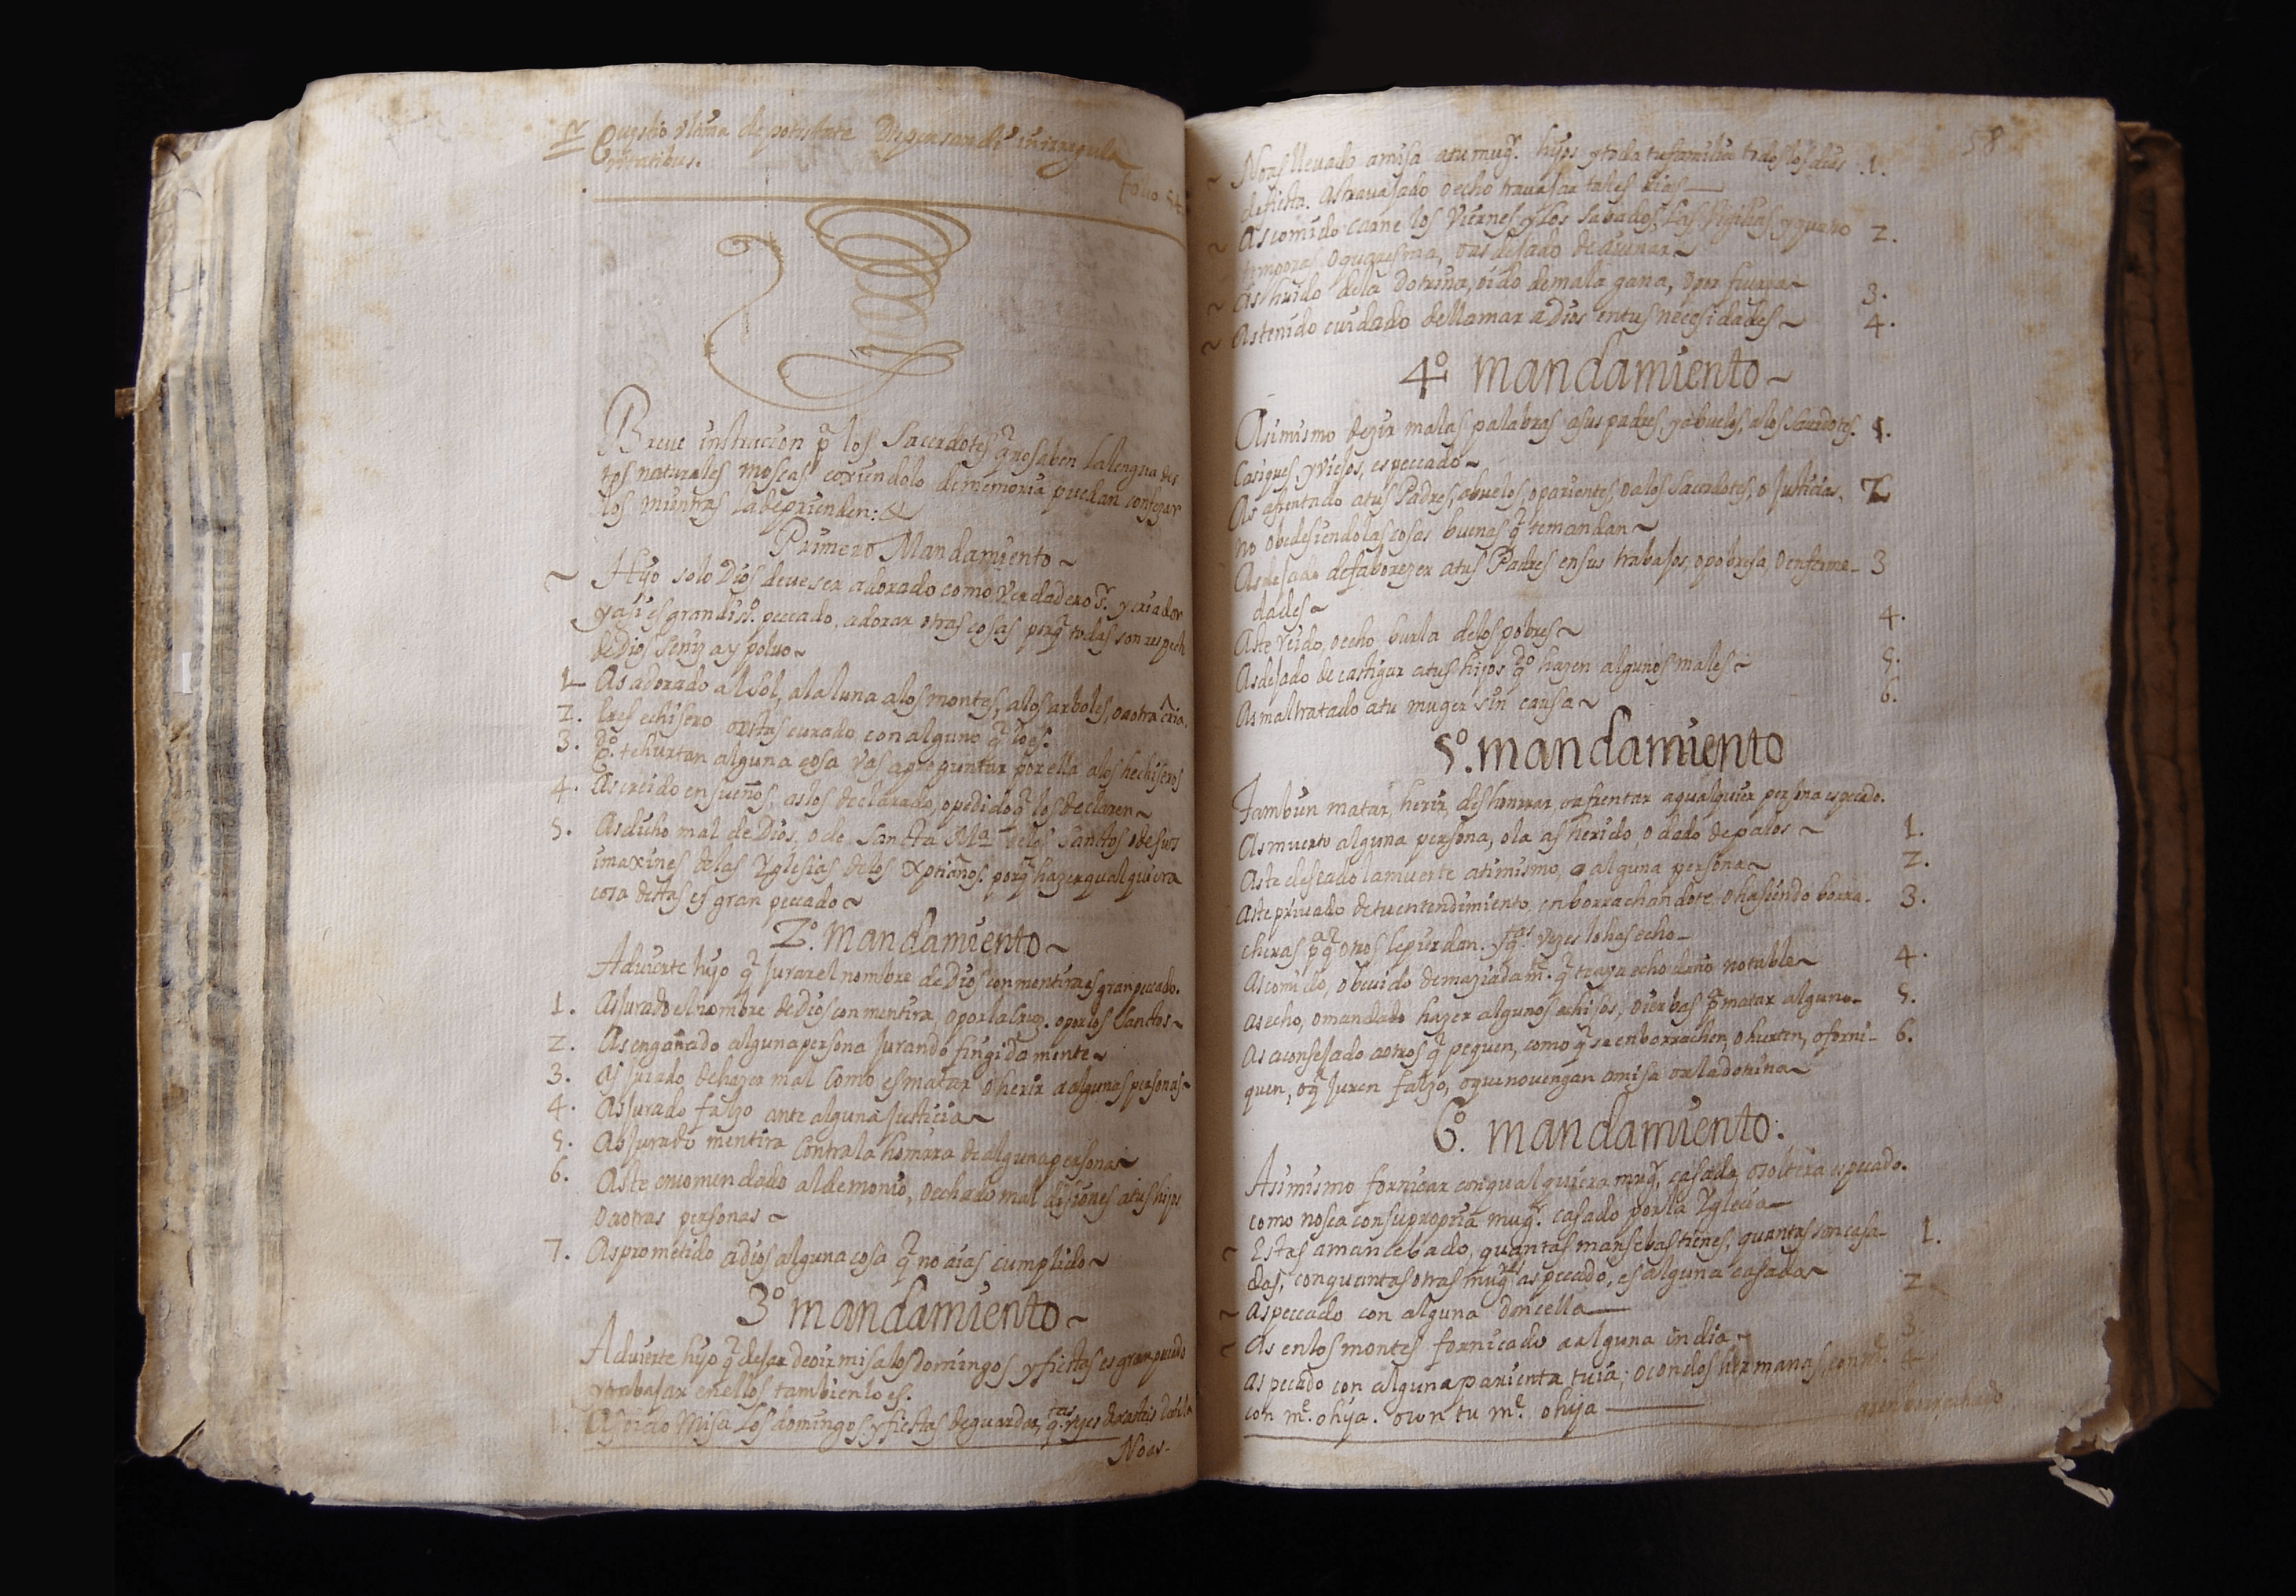 Questio vltima de potestate Dispensandi in irregula
ritatibus.
folio 54
Breve instruccion pa los Sacerdotes q no saben la lengua des
tos naturales moscas coxiendolo de memoria puedan confezar
los mientras la deprienden:
Primero Mandamiento
Hijo solo Dios deve ser adorado como Verdadero Sr. y criador
y asi es grandiso. peccado, adorar otras cosas porq todas son respecto
de Dios seniza y polvo
1 As adorado al sol, a la luna a los montes, a los arboles, o a otra cria.
2. Eres echisero o estas curado con alguno q lo es.
3. Qdo. te hurtan alguna cosa vas a preguntar por ella a los hechiseros
4. As creido en sueños, as los declarado, o pedido q los declaren
5. As dicho mal de Dios, o de Sancta Ma. de los Sanctos o de sus
imaxines de las Yglesias de los Xptianos. porq hazer qualquiera
cosa destas es gran peccado
2o. mandamiento
Advierte hijo q jurar el nombre de Dios con mentira es gran peccado.
1. As jurado el nombre de Dios con mentira o por la cruz. o por los Sanctos
2. As engañado alguna persona jurando fingida mente
3. as jurado, de hazer mal como es matar o herir a algunas personas
4. As jurado falzo ante alguna justicia
5. As jurado mentira contra la honrra de alguna persona
6. As te encomendado al demonio, o echado mal disiones a tus hijos
o a otras personas
7. As prometido a dios alguna cosa q no aias cumplido
3o mandamiento
Advierte hijo q dejar de oir misa los domingos y fiestas es gran peccado
y trabajar en ellos tambien lo es.
1. As oido Misa los domingos y fiestas de guardar, qtas. vezes
Noas-
58
No as llevado a misa a tu mugr. hijos y toda tu familia todos los dias 1.
de fiesta. as travajado o echo travajar tales dias
As comido carne los Viernes y los sabados, las Vigilias y quatro 2.
temporas, o quaresma, o as dejado de aiunar
As huido de la dotrina, oido de mala gana, o por fuerza 3.
As tenido cuidado de llamar a Dios en tus necesidades 4.
4o mandamiento
Asimismo dezir malas palabras a sus padres, y abuelos, a los Sacerdotes. 1.
Casiques, y viejos, es peccado
As afrentado a tus Padres, abuelos, o parientes, o a los Sacerdotes, o Justicias, 2
no obedesiendo las cosas buenas q te mandan
As dejado de faborezer a tus Padres en sus trabajos, o pobresa, o enferme- 3
dades
As te reido, o echo burla de los pobres 4.
As dejado de castigar a tus hijos qdo hazen algunos males 5.
As maltratado a tu muger sin causa 6.
5o. mandamiento
Tambien matar, herir, deshonrrar, o afrentar a qualquier persona es pecado.
As muerto alguna persona, o la as herido, o dado de palos 1.
As te deseado la muerte a ti mismo, o a alguna persona 2.
As te privado de tu entendimiento, enborrachandote, o hasiendo borra- 3.
cheras pa q otros le pierdan. y qtas. vezes lo has echo
As comido, o bevido demaziadamte. q te aya echo daño notable 4.
As echo, o mandado hazer algunos echisos, o ierbas pa matar alguno 5.
As aconsejado a otros q pequen, como q se enborrachen, o hurten, o forni- 6.
quen, o q juren falzo, o que no vengan a misa o a la dotrina
6o. mandamiento.
Asimismo fornicar con qualquiera mugr. casada, o soltera es pecado.
como no sea con su propria mugr. casado por la Yglecia
Estas amancebado, quantas mansebas tienes, quantas son casa- 1.
das, con quantas otras mugres as peccado, es alguna casada
As peccado con alguna doncella 2
As en los montes fornicado a alguna india 3
As pecado con alguna parienta tuia; o con dos hermanas, 4
con me. o hija. o con tu me. o hija